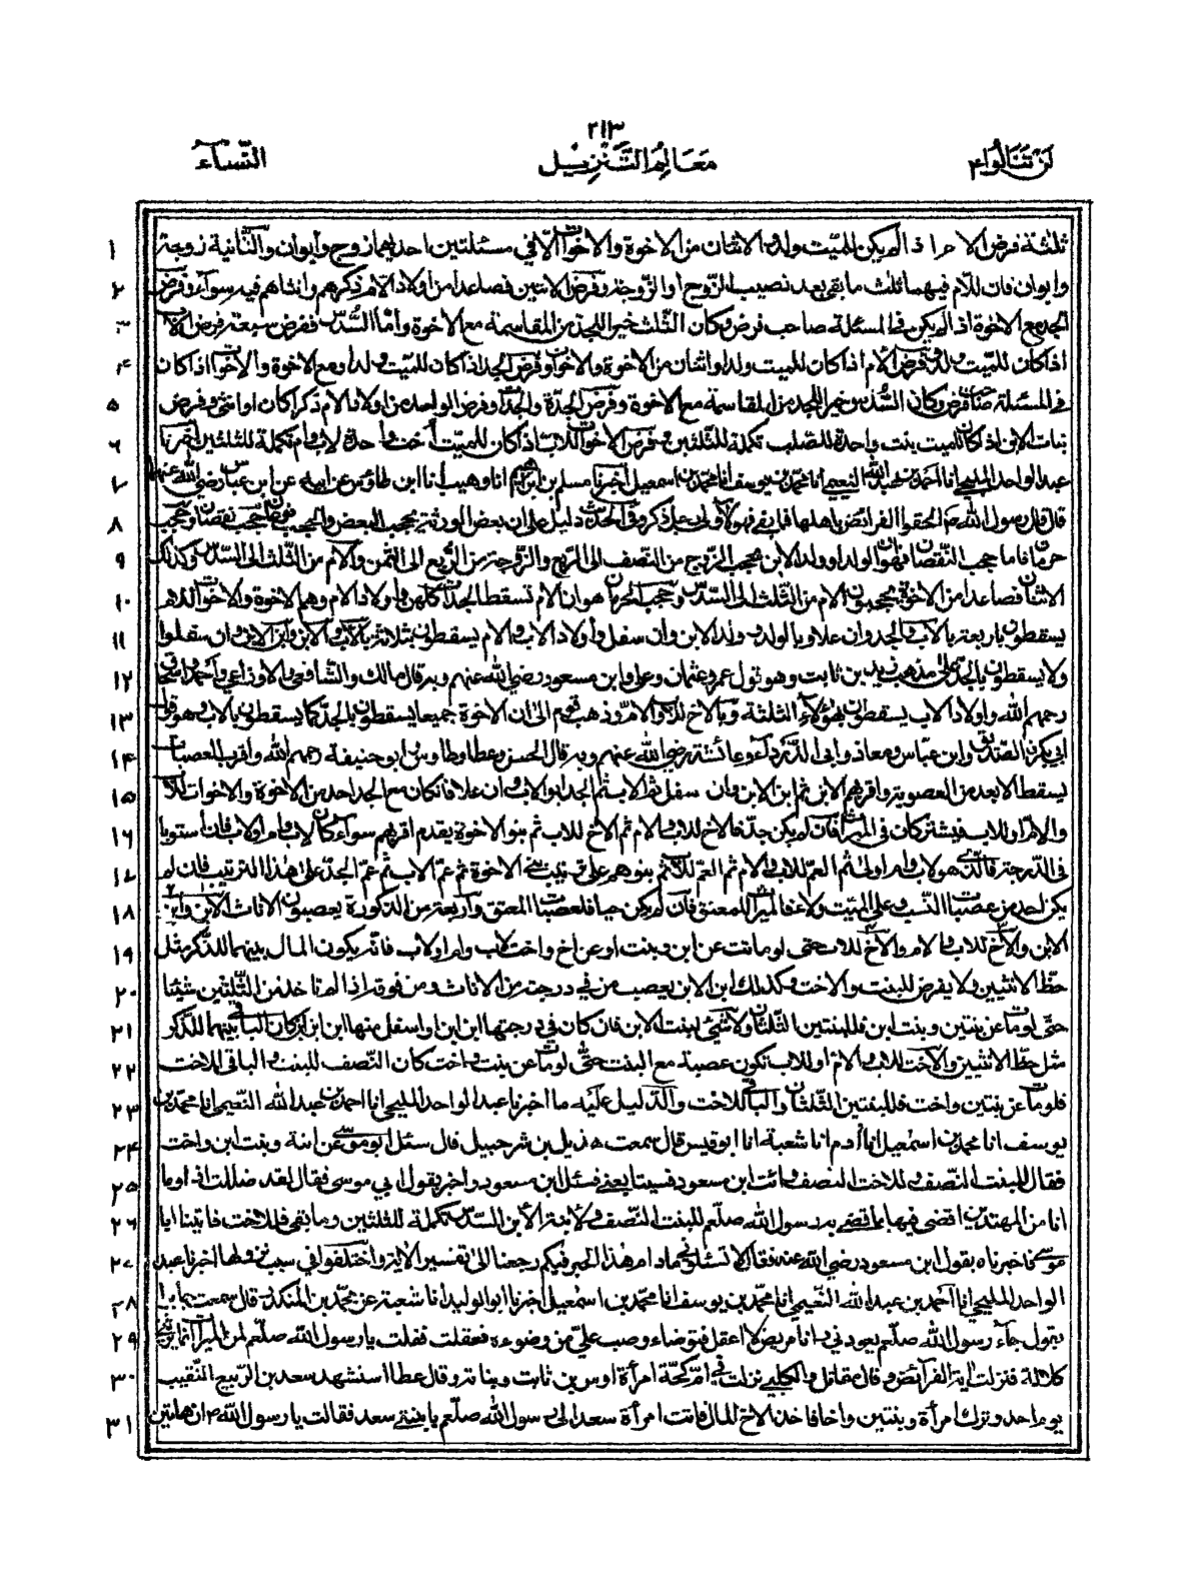 ٢١٣
لن تنالوا ٤ معالم التنزيل النساء
١ ثلثة فرض الام اذا لم يكن للميت ولد ولا اثنان من الاخوة والاخوات الا في مسئلتين احدىهما زوج وابوان والثانية زوجة
٢ وابوان فان للام فيهما ثلث ما بقى بعد نصيب الزوج او الزوجة وفرض الاثنين فصاعدا من اولاد الام ذكرهم وانثاهم فيه سواء وفرض
٣ الجد مع الاخوة اذا لم يكن في المسئلة صاحب فرض وكان الثلث خيرا للجد من المقاسمة مع الاخوة واما السدس ففرض سبعة فرض الاب
٤ اذا كان للميت ولد وفرض الام اذا كان للميت ولد او اثنان من الاخوة والاخوات وفرض الجد اذا كان للميت ولد ومع الاخوة والاخوات اذا كان
٥ في المسئلة صاحب فرض وكان السدس خيرا للجد من المقاسمة مع الاخوة وفرض الجدة والجدات وفرض الواحد من اولاد الام ذكرا كان او انثى وفرض
٦ بنات الابن اذا كان للميت بنت واحدة للصلب تكملة للثلثين وفرض الاخوات للاب اذا كان للميت اخت واحدة لاب وام تكملة للثلثين اخبرنا
٧ عبد الواحد المليحي انا احمد بن عبد الله النعيمي انا محمد بن يوسف انا محمد بن اسمعيل اخبرنا مسلم بن ابراهيم انا وهيب انا ابن طاؤس عن ابيه عن ابن عباس رضي الله عنهما
٨ قال قال رسول الله ص الحقوا الفرائض باهلها فما بقي فهو لاولى رجل ذكر وفي الحديث دليل على ان بعض الورثة يحجب البعض والحجب نوعان حجب نقصان وحجب
٩ حرمان فاما حجب النقصان فهو ان الولد او ولد الابن يحجب الزوج من النصف الى الربع والزوجة من الربع الى الثمن والام من الثلث الى السدس وكذلك
١٠ الاثنان فصاعدا من الاخوة يحجبون الام من الثلث الى السدس وحجب الحرمان هو ان الام تسقط الجدات كلهن واولاد الام وهم الاخوة والاخوات للام
١١ يسقطون باربعة بالاب والجد وان علا وبالولد وولد الابن وان سفل واولاد الاب والام يسقطون بثلثة بالاب والابن وابن الابن وان سفلوا
١٢ ولا يسقطون بالجد على مذهب زيد بن ثابت وهو قول عمر وعثمان وعلي وابن مسعود رضي الله عنهم وبه قال مالك والشافعي والاوزاعي واحمد واسحق
١٣ رحمهم الله واولاد الاب يسقطون بهؤلاء الثلثة وبالاخ للاب والام وذهب قوم الى ان الاخوة جميعا يسقطون بالجد كما يسقطون بالاب وهو قول
١٤ ابي بكر الصديق وابن عباس ومعاذ وابي الدرداء وعائشة رضي الله عنهم وبه قال الحسن وعطا وطاوس وابو حنيفة رحمهم الله واقرب العصبات
١٥ يسقط الابعد من العصوبة واقربهم الابن ثم ابن الابن وان سفل ثم الاب ثم الجد ابو الاب وان علا فان كان مع الجد احد من الاخوة والاخوات للاب
١٦ والام او للاب فيشتركان في الميراث فان لم يكن جد فالاخ للاب والام ثم الاخ للاب ثم بنو الاخوة يقدم اقربهم سواء كان لاب وام او لاب فان استويا
١٧ في الدرجة فالذي هو لاب وام اولى ثم العم للاب والام ثم العم للاب ثم بنوهم على ترتيب بني الاخوة ثم عم الاب ثم عم الجد على هذا الترتيب فان لم
١٨ يكن احد من عصبات النسب وعلى الميت ولاء فالميراث للمعتق فان لم يكن حيا فلعصبات المعتق واربعة من الذكورة يعصبون الاناث الابن وابن
١٩ الابن والاخ للاب والام والاخ للاب حتى لو مات عن ابن وبنت او عن اخ واخت لاب وام او لاب فانه يكون المال بينهما للذكر مثل
٢٠ حظ الانثيين ولا يفرض للبنت والاخت وكذلك ابن الابن يعصب من في درجته من الاناث ومن فوقه اذا لم تاخذ من الثلثين شيئا
٢١ حتى لو مات عن بنتين وبنت ابن فللبنتين الثلثان ولا شيء لبنت الابن فان كان في درجتها ابن ابن او اسفل منها ابن ابن ابن كان الباقي بينهما للذكر
٢٢ مثل حظ الانثيين والاخت للاب والام او للاب تكون عصبة مع البنت حتى لو مات عن بنت واخت كان النصف للبنت والباقي للاخت
٢٣ فلو مات عن بنتين واخت فللبنتين الثلثان والباقي للاخت والدليل عليه ما اخبرنا عبد الواحد المليحي انا احمد بن عبد الله النعيمي انا محمد بن
٢٤ يوسف انا محمد بن اسمعيل انا آدم انا شعبة انا ابو قيس قال سمعت هذيل بن شرحبيل قال سئل ابو موسى عن ابنة وبنت ابن واخت
٢٥ فقال للبنت النصف وللاخت النصف وائت ابن مسعود فسيتابعني فسئل ابن مسعود واخبر بقول ابي موسى فقال لقد ضللت اذا وما
٢٦ انا من المهتدين اقضي فيها بما قضى به رسول الله صلعم للبنت النصف ولابنة الابن السدس تكملة للثلثين وما بقى فللاخت فاتينا ابا
٢٧ موسى فاخبرناه بقول ابن مسعود رضي الله عنه فقال لا تسئلوني ما دام هذا الحبر فيكم رجعنا الى تفسير الاية واختلفوا في سبب نزولها اخبرنا عبد
٢٨ الواحد المليحي انا احمد بن عبد الله النعيمي انا محمد بن يوسف انا محمد بن اسمعيل اخبرنا ابو الوليد انا شعبة عن محمد بن المنكدر قال سمعت جابرا
٢٩ يقول جاء رسول الله صلعم يعودني وانا مريض لا اعقل فتوضاء وصب علي من وضوءه فعقلت فقلت يا رسول الله صلعم لمن الميراث انما يرثني
٣٠ كلالة فنزلت اية الفرائض وقال مقاتل والكلبي نزلت في ام كحة امرأة اوس بن ثابت وبناته وقال عطا استشهد سعد بن الربيع النقيب
٣١ يوم احد وترك امرأة وبنتين واخا فاخذ الاخ المال فاتت امرأة سعد الى رسول الله صلعم بابنتي سعد فقالت يا رسول الله ص ان هاتين